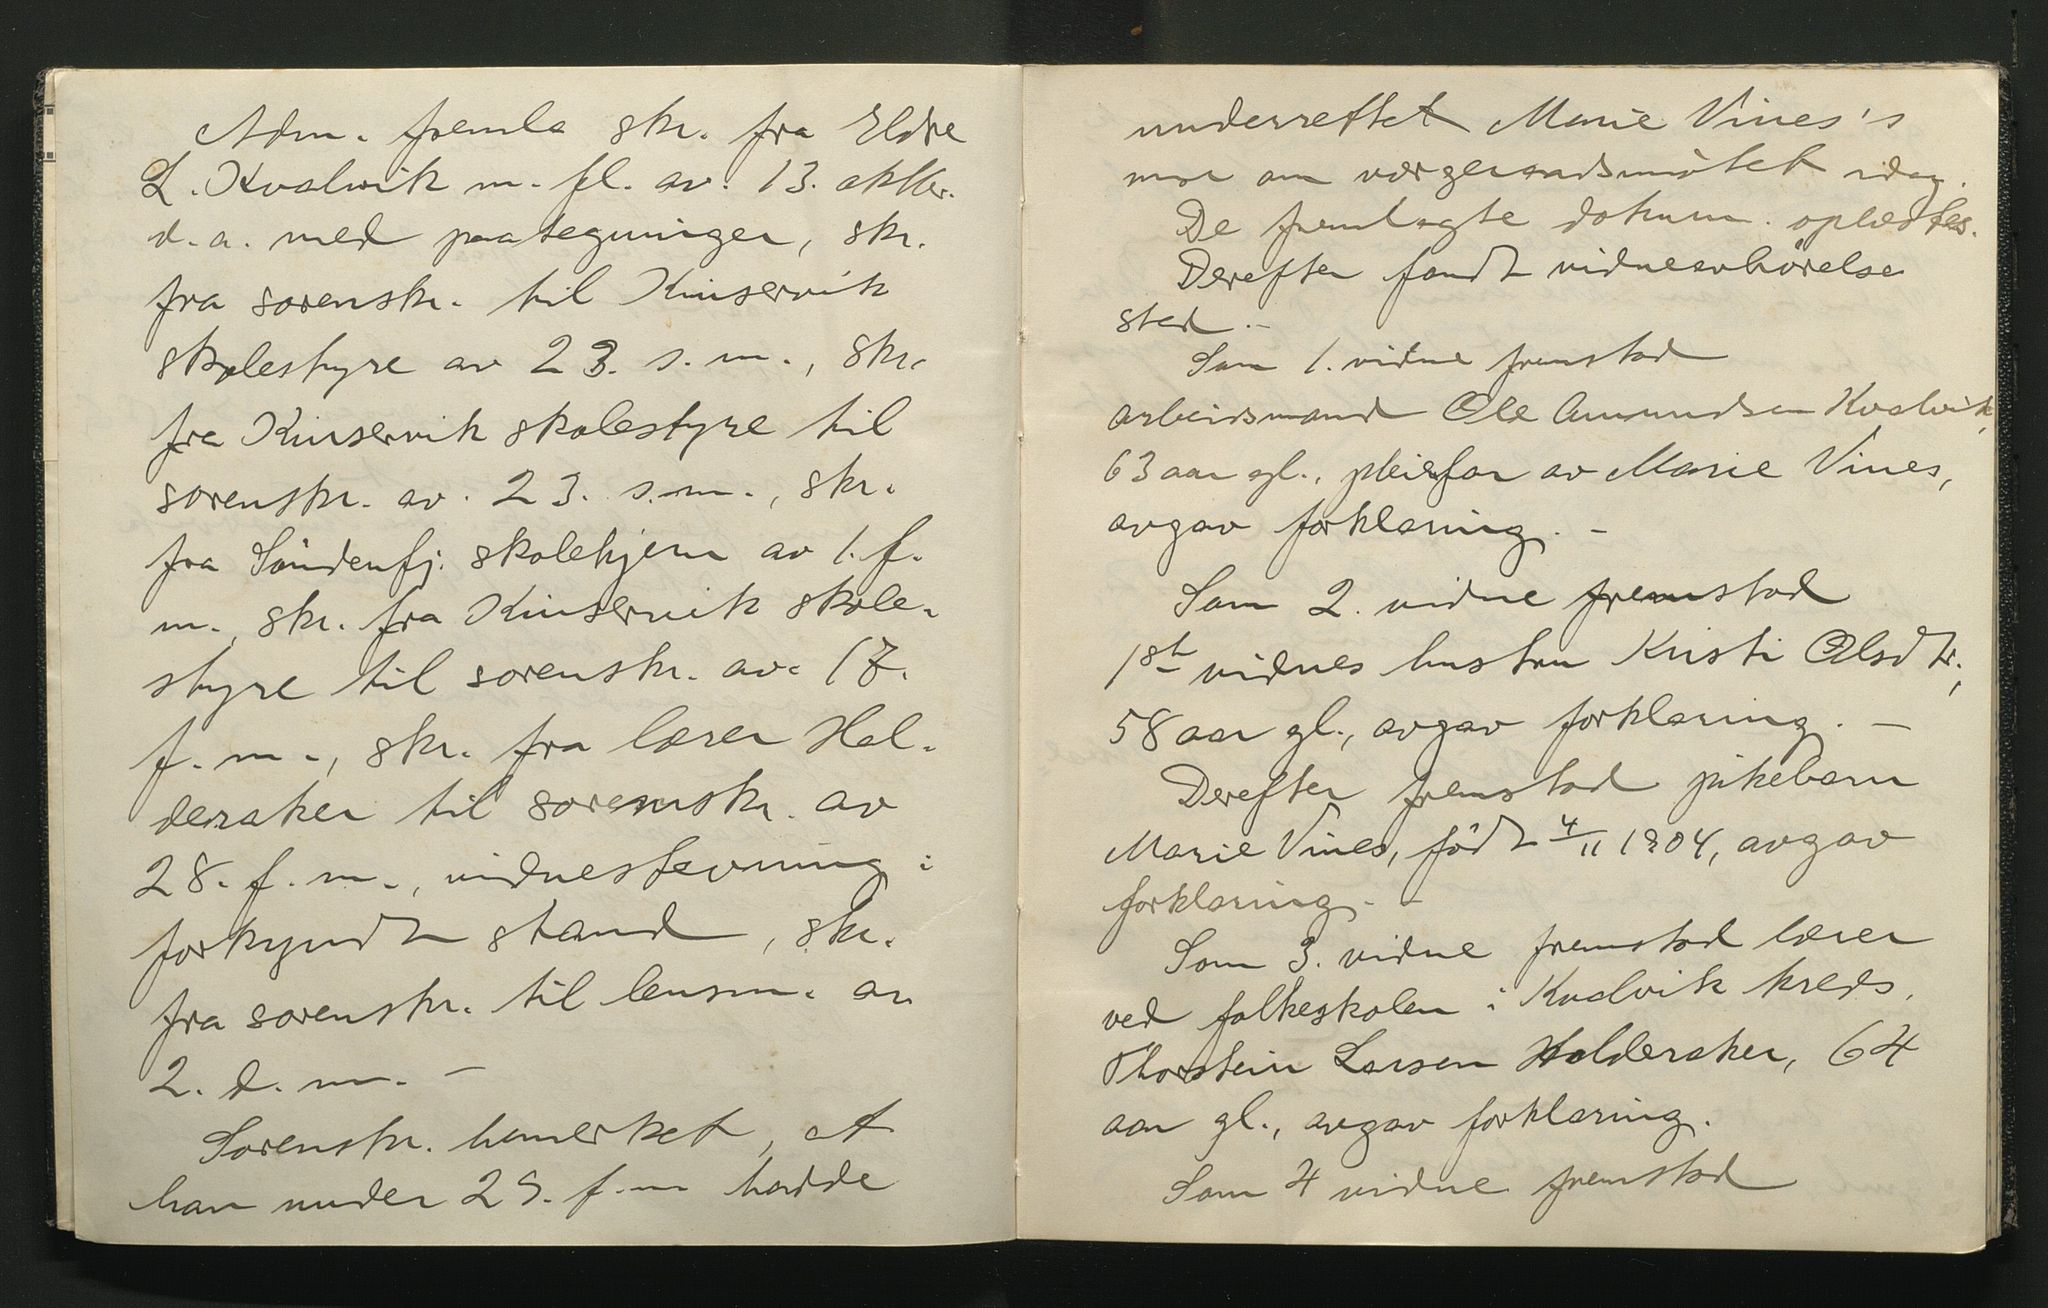 Adm. fremla skr. fra Eldre
L. Kvalvik m. fl. av. 13. oktbr.
d. a. med paategninger, skr.
fra sorenskr. til Kinservik
skolestyre av 23. s. m., skr.
fra Kinservik skolestyre til
sorenskr. av. 23. s. m., skr.
fra Söndenfj. skolehjem av 1. f.
m., skr. fra Kinservik skole-
styre til sorenskr. av. 17.
f. m., skr. fra lærer Hol-
deraker til sorenskr. av
28. f. m., vidnestevning i
forkyndt stand, skr.
fra sorenskr. til lensm. av
2. d. m. –
Sorenskr. bemerket, at
han under 29. f. m hadde
underrettet Marie Vines's
mor om vergeraadsmötet idag.
De fremlagte dokum. oplæstes.
Derefter fandt vidneavhörelse
sted. –
Som 1. vidne fremstod
arbeidsmand Ole Amundsen Kvalvik,
63 aar gl., pleiefar av Marie Vines,
avgav forklaring. –
Som 2. vidne fremstod
1ste vidnes hustru Kristi Olsdtr.,
58 aar gl., avgav forklaring. –
Derefter fremstod pikebarn
Marie Vines, född 4/11 1904, avgav
forklaring. –
Som 3. vidne fremstod lærer
ved folkeskolen i Kvalvik kreds,
Thorstein Larsen Holderaker, 64
aar gl., avgav forklaring.
Som 4 vidne fremstod